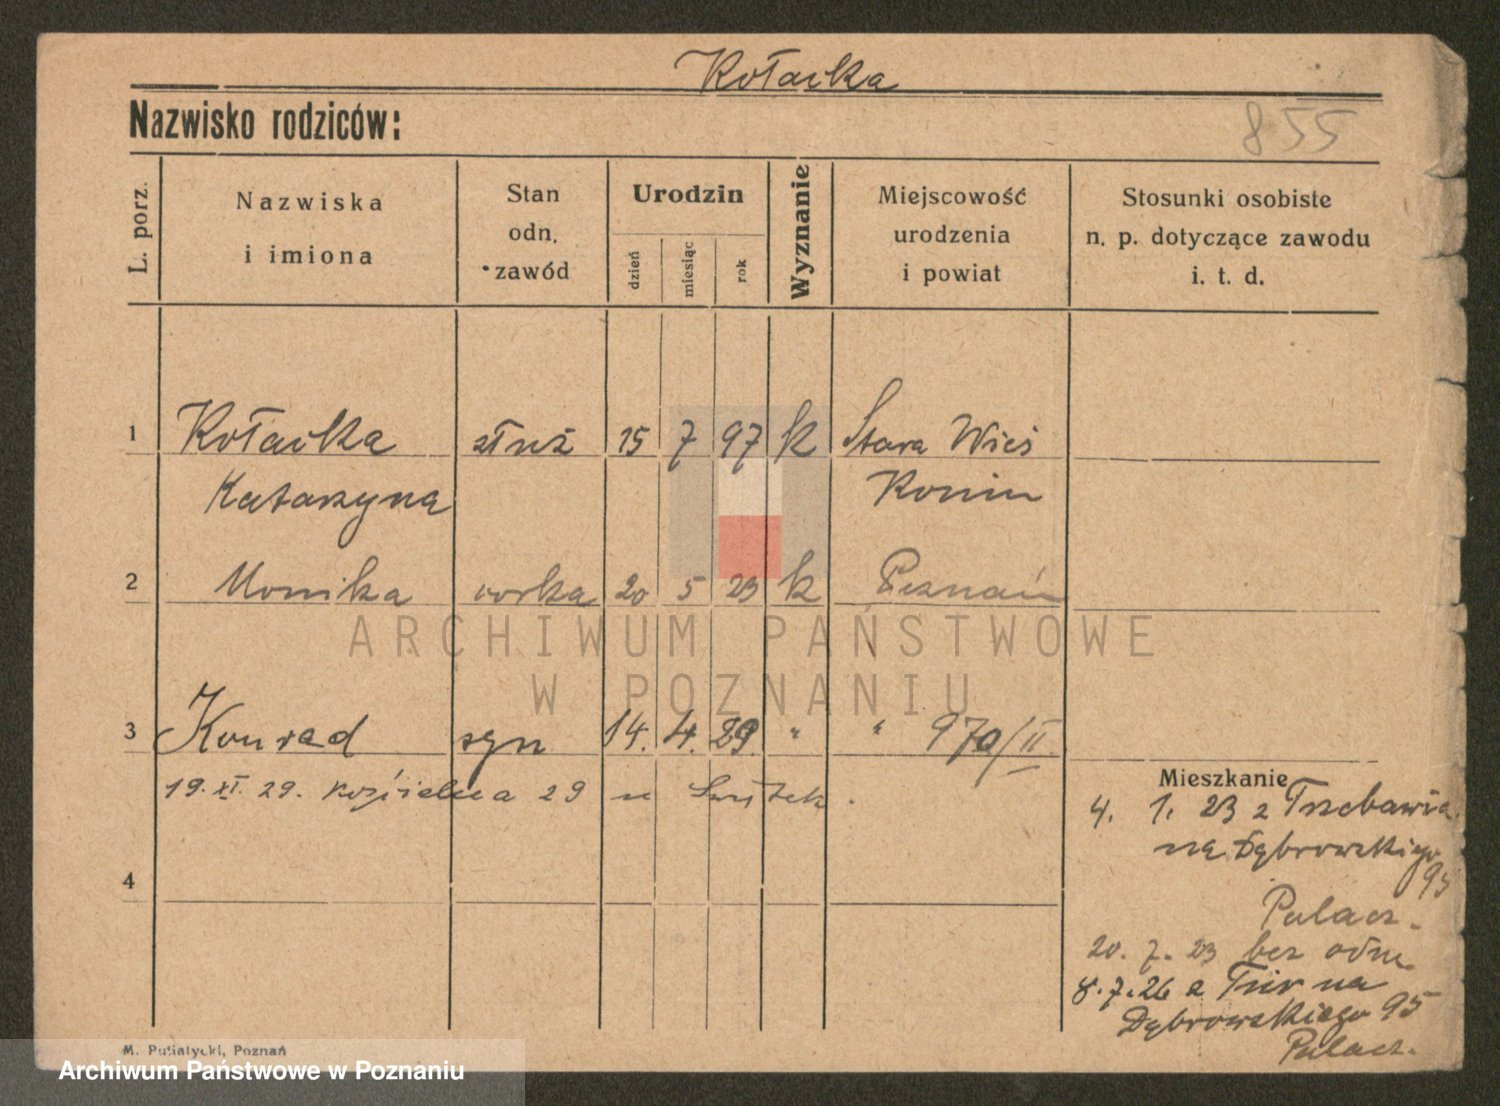 Kołacka
Nazwisko rodziców:
855
L. porz.
Nazwiska
i imiona
Stan
odn.
zawód
Urodzin
dzień
miesiąc
rok
Wyznanie
Miejscowość
urodzenia
i powiat
Stosunki osobiste
n. p. dotyczące zawodu
i. t. d.
1 Kołacka służ 15 7 97 k Stara Wieś
Katarzyna Konin
2 Monika córka 20 5 23 k Poznań
ARCHIWUM PAŃSTWOWE
W POZNANIU
3 Konrad syn 14. 4. 29. " " 970/II
19. XI. 29. Kościelna 29 u
Mieszkanie
4. 1. 23 z
na Dąbrowskiego
95
Palacz.
20. 7. 23 bez odm.
8. 7. 26 z Tur na
Dąbrowskiego 95
Palacz.
4
M. Putiatycki, Poznań
Archiwum Państwowe w Poznaniu